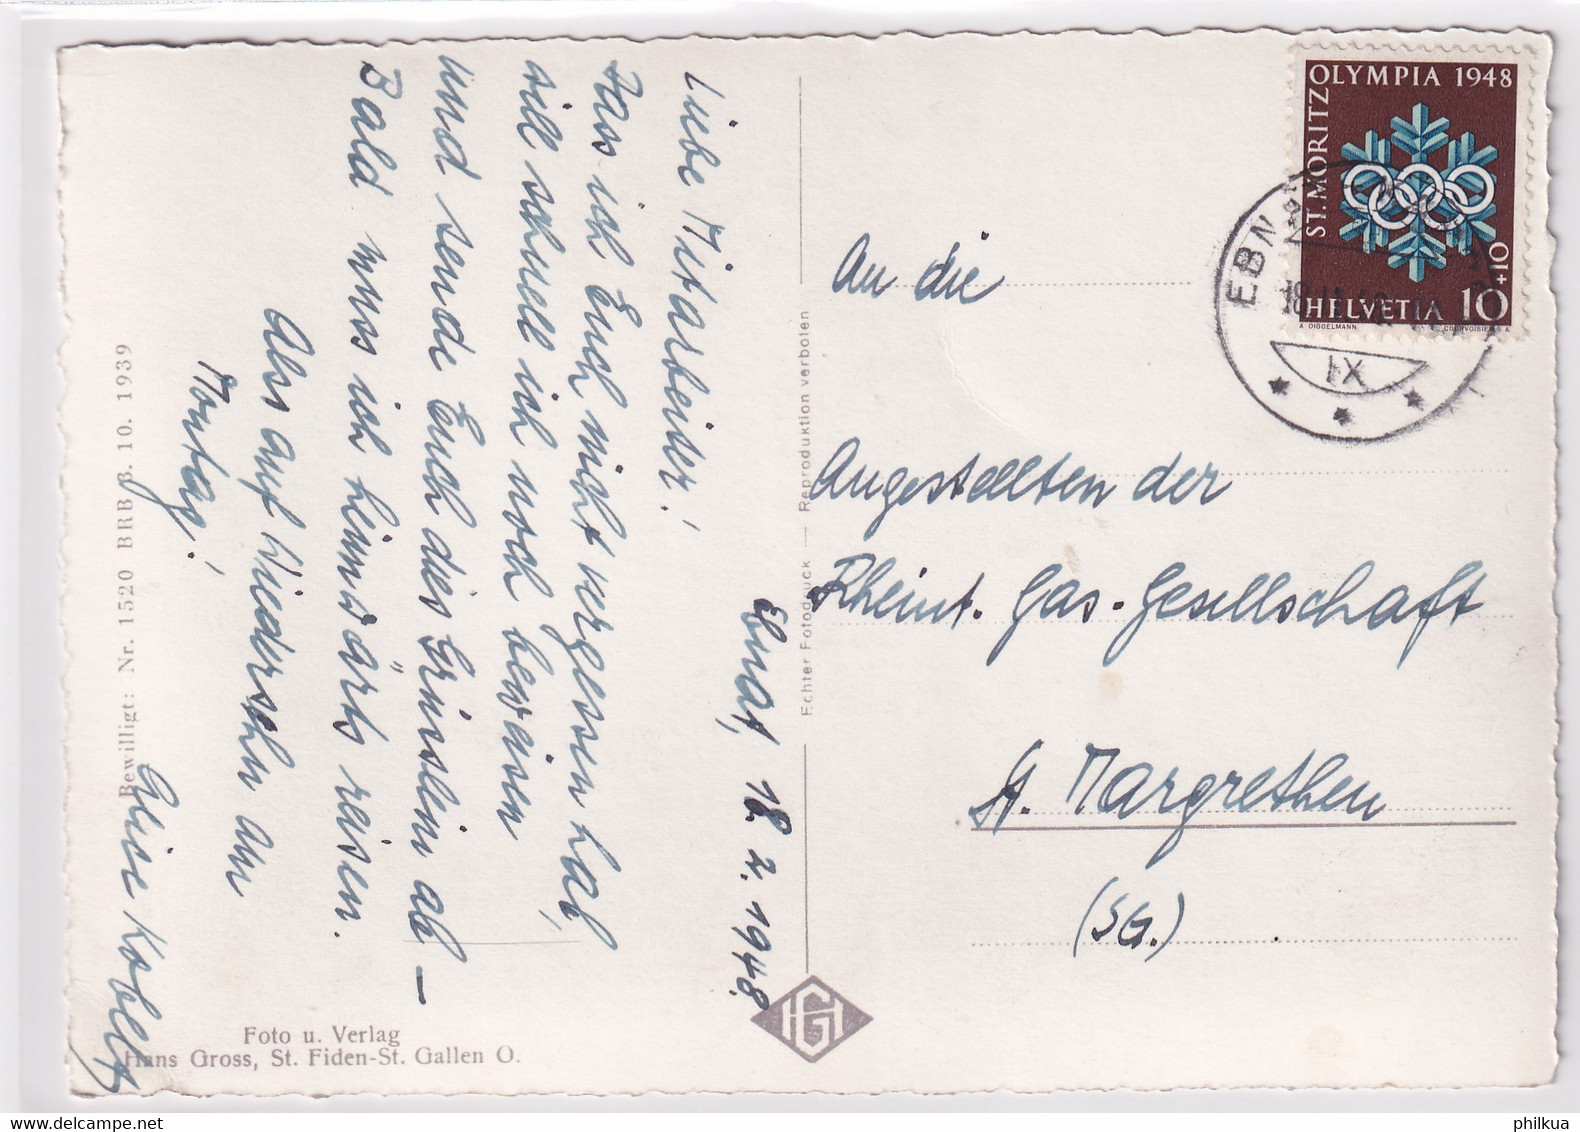 Ebnat, 18. 2. 1948.
Liebe Mitarbeiter!
Dass ich Euch nicht vergessen hab,
will schnell ich noch beweisen
und sende Euch dies Grüsslein ab –
Bald muss ich heimwärts reisen.
Also auf Wiedersehn am
Montag!
Alice Kobelt
Bewilligt: Nr. 1520 BRB 3. 10. 1939
Foto u. Verlag
Hans Gross, St. Fiden-St. Gallen O.
Echter Fotodruck — Reproduktion verboten
HG
ST. MORITZ OLYMPIA 1948
10+10
HELVETIA
A. DIGGELMANN. COURVOISIER S.A.
EBNAT
18. II. 48
IX
An die
Angestellten der
Rheint. Gas-Gesellschaft
St. Margrethen
(SG.)
philkua